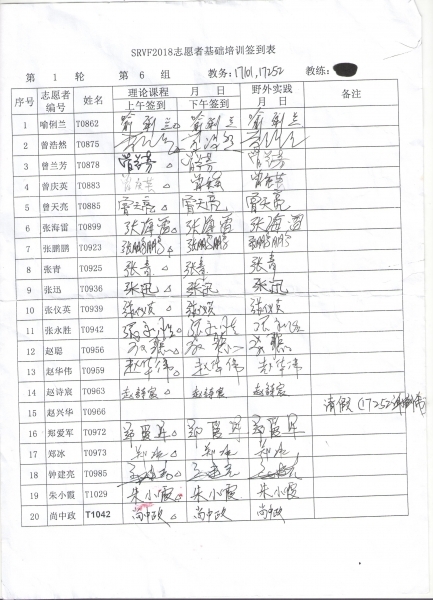 SRVF2018志愿者基础培训签到表
第 1 轮 第 6 组 教务：17101,17252 教练：
序号 志愿者编号 姓名 理论课程 月 日 上午签到 下午签到 野外实践 月 日 备注
1 喻俐兰 T0862 喻俐兰 喻俐兰 喻俐兰
2 曾浩然 T0875
3 曾兰芳 T0878 曾兰芳 曾兰芳 曾兰芳
4 曾庆英 T0883 曾庆英 曾庆英
5 曾天亮 T0885 曾天亮 曾天亮 曾天亮
6 张海雷 T0899 张海雷 张海雷 张海雷
7 张鹏鹏 T0923 张鹏鹏 张鹏鹏 张鹏鹏
8 张青 T0925 张青 张青 张青
9 张迅 T0936 张迅 张迅 张迅
10 张仪英 T0939 张仪英 张仪英 张仪英
11 张永胜 T0942 张永胜 张永胜 张永胜
12 赵聪 T0956 赵聪 赵聪 赵聪
13 赵华伟 T0959 赵华伟 赵华伟 赵华伟
14 赵诗宸 T0963 赵诗宸 赵诗宸 赵诗宸
15 赵兴华 T0966 请假（17252
16 郑爱军 T0972 郑爱军 郑爱军 郑爱军
17 郑冰 T0973 郑冰 郑冰 郑冰
18 钟建亮 T0985
19 朱小霞 T1029 朱小霞 朱小霞 朱小霞
20 尚中政 T1042 尚中政 尚中政 尚中政